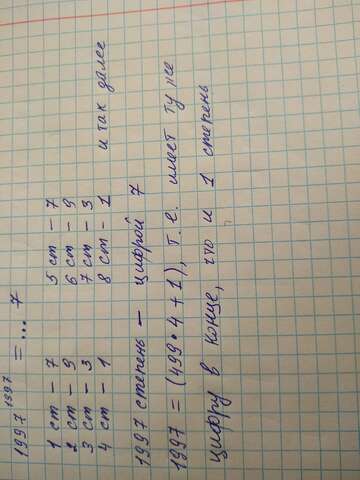 1997¹⁹⁹⁷ = ... 7
1 ст - 7 5 ст - 7
2 ст - 9 6 ст - 9
3 ст - 3 7 ст - 3
4 ст - 1 8 ст - 1 и так далее
1997 степень - цифрой 7
1997 = (499·4+1), т.е. имеет ту же
цифру в конце, что и 1 степень